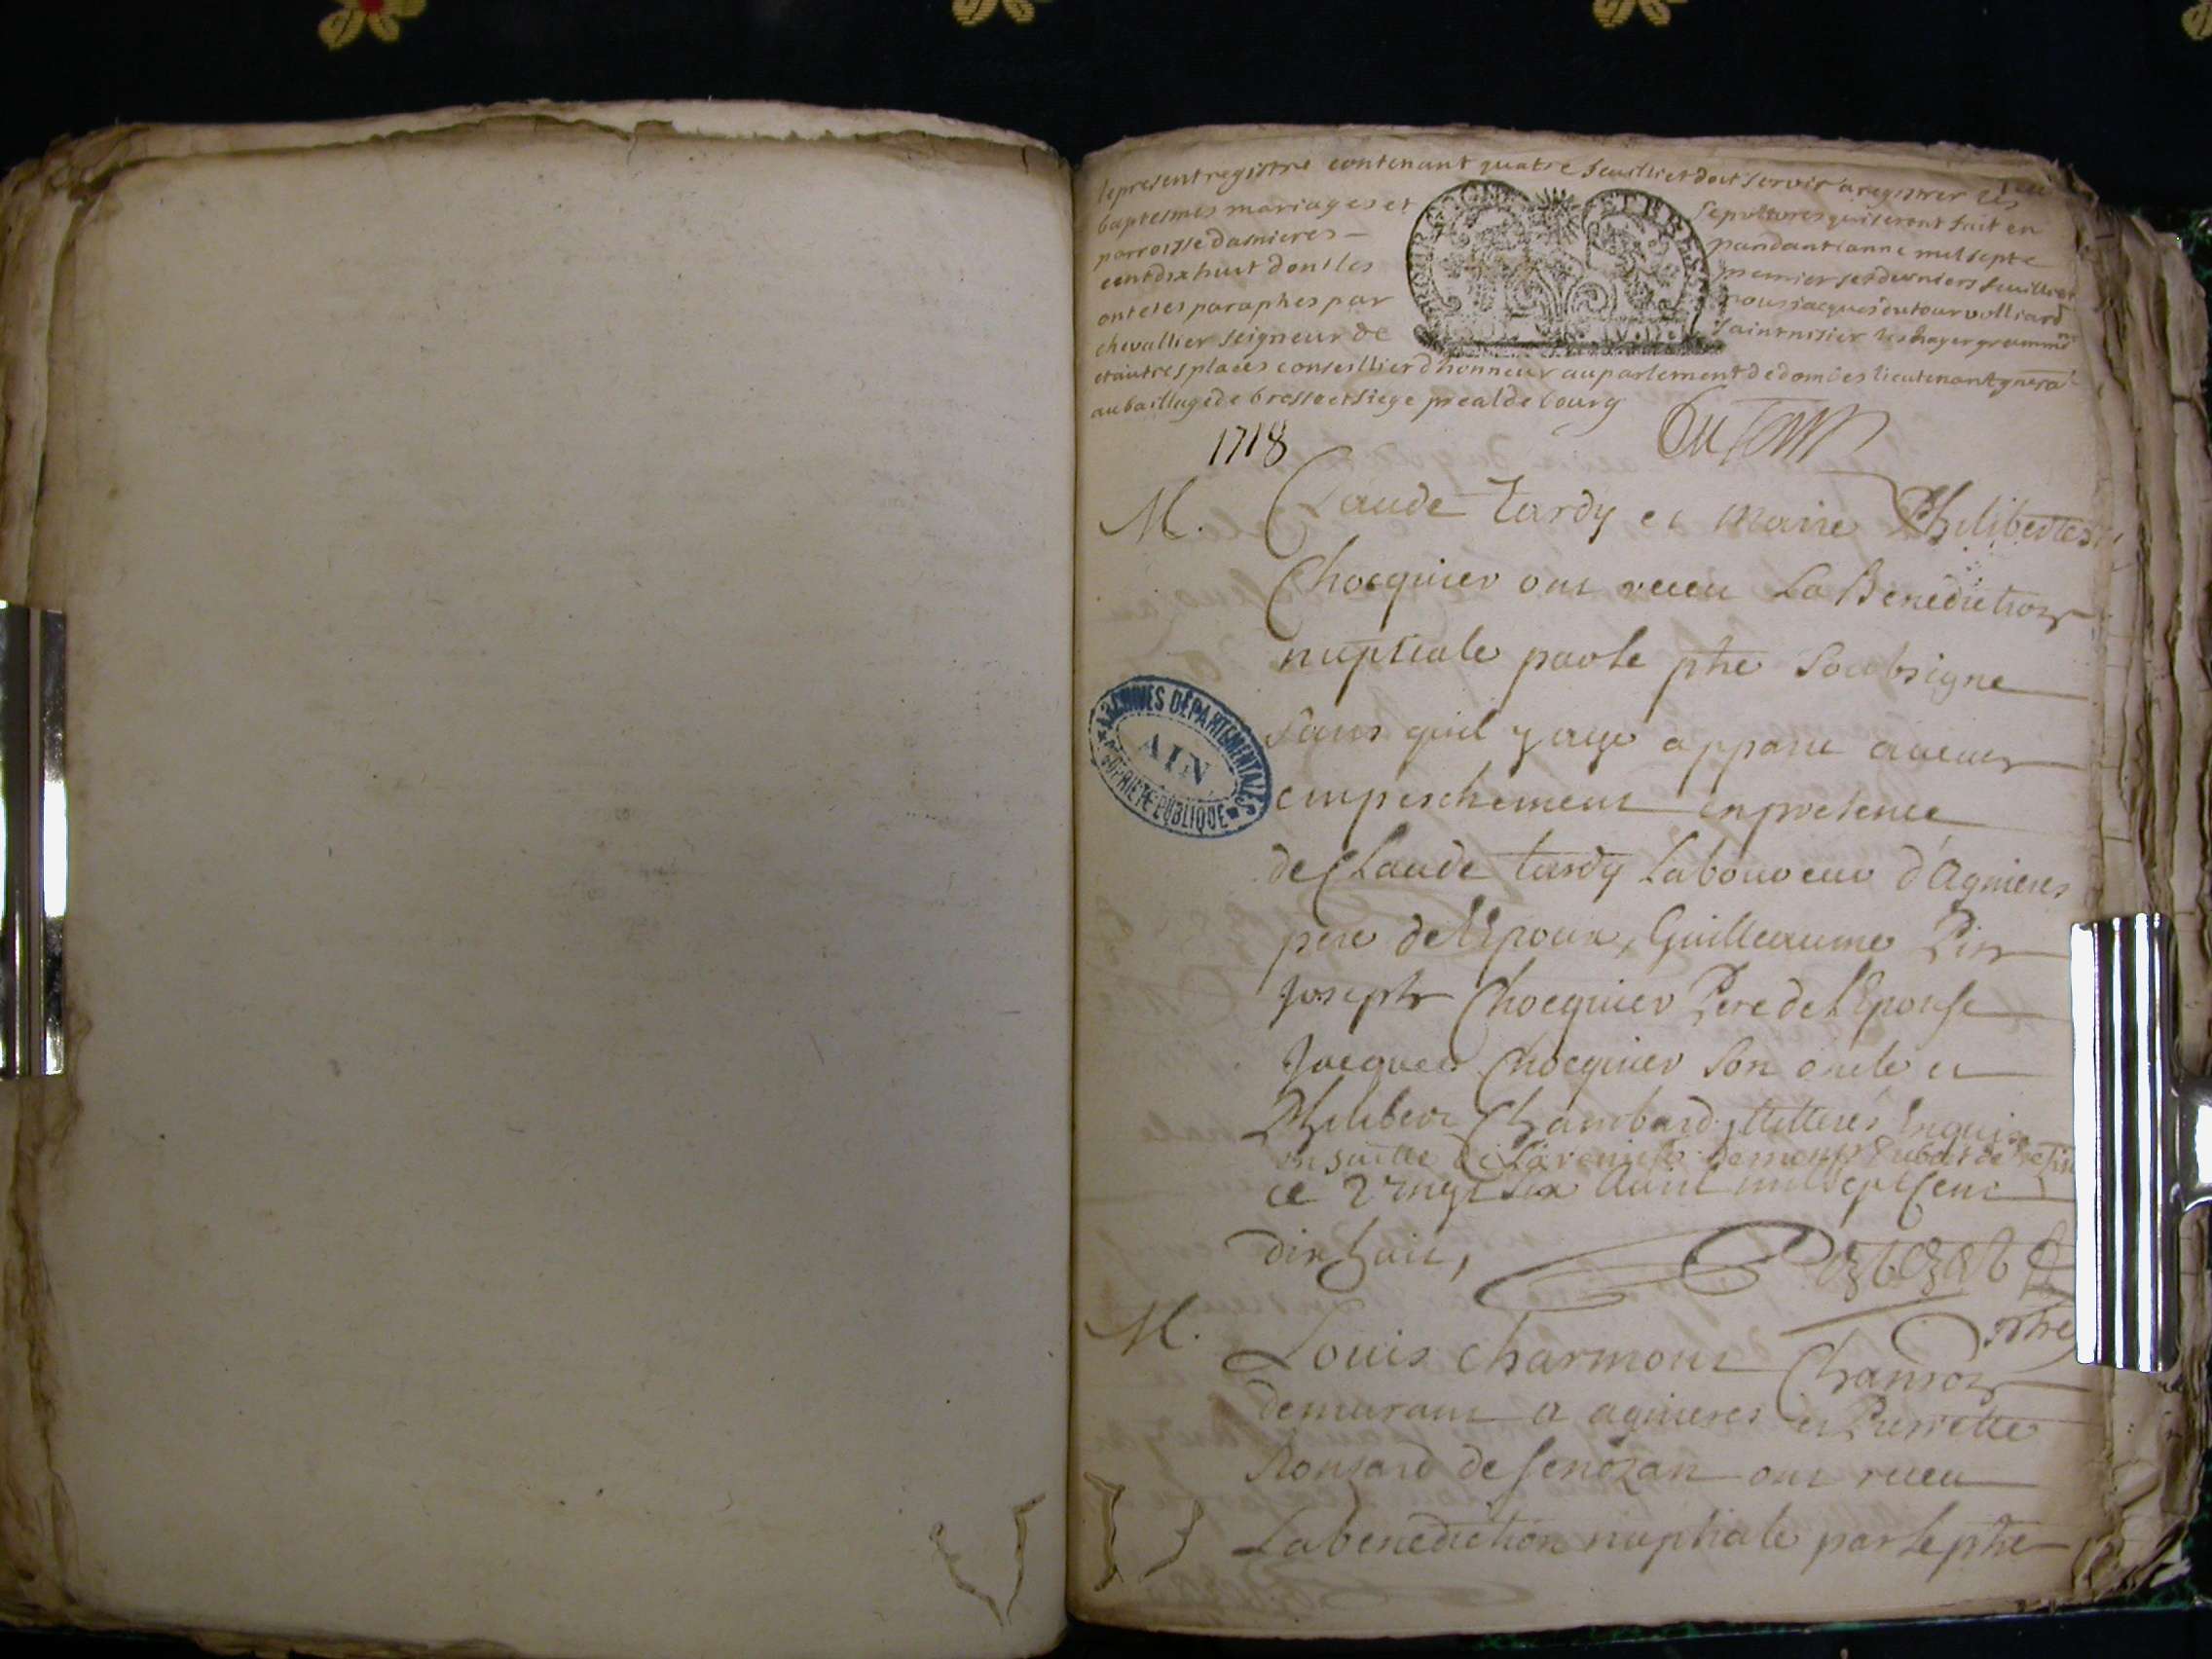 le present registre contenant quatre feuilliet doit servir a registrer les
baptesmes mariages et sepultures qui seront fait en
parroisse dasnieres pandant lanne mil sept
cent dix huit dont les premier et derniers feuilliet
ont etes paraphes par nous jacques dutour vulliard
chevallier seigneur de saint nisier
et autres places conseillier dhonneur au parlement de dombes lieutenant general
au baillage de bresse et siege preal de bourg
Dutour
1718
M. Claude tardy et Marie Philiberte
Chocquier ont receu La Benediction
nuptiale par le ptre Soubsigne
Sans quil y aye apparu aucun
empeschement en presence
de Claude tardy Laboureur d'Agnieres
pere de l'Epoux, Guilleaume Pin
Joseph Chocquier Pere de l'Epouse
Jacques Chocquier Son oncle et
Philibert Chambard, illiteres
ce 2 vingt six Avril mil sept cent
dix huit,
ptre
M. Louis Charmont Charron
demurant a agnieres et Pierrette
Ronsard de Senozan ont receu
La benediction nuptiale par le ptre
BOURGOGNE ET BRESSE
ARCHIVES DÉPARTEMENTALES
AIN
PROPRIÉTÉ PUBLIQUE